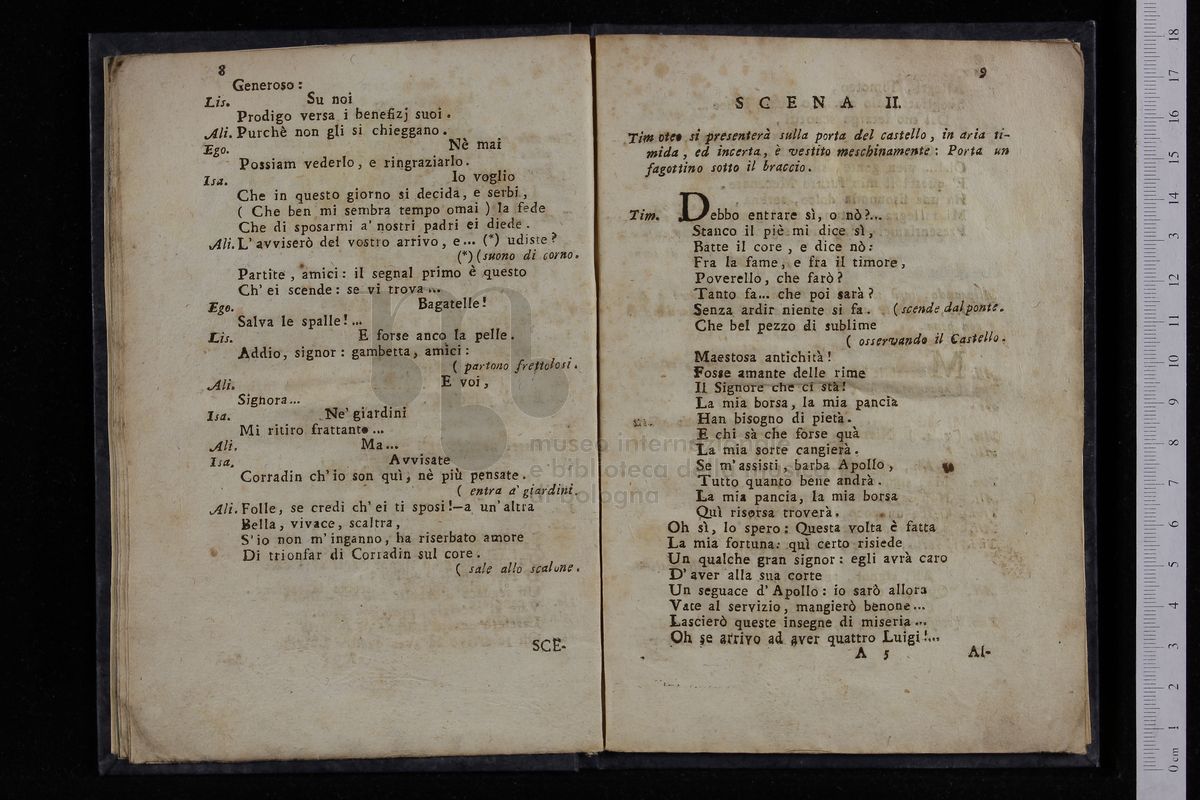 8
Generoso:
Lis. Su noi
Prodigo versa i benefizj suoi.
Ali. Purchè non gli si chieggano.
Ego. Nè mai
Possiam vederlo, e ringraziarlo.
Isa. Io voglio
Che in questo giorno si decida, e serbi,
( Che ben mi sembra tempo omai ) la fede
Che di sposarmi a' nostri padri ei diede.
Ali. L'avviserò del vostro arrivo, e... (*) udiste?
(*) (suono di corno.
Partite, amici: il segnal primo è questo
Ch' ei scende: se vi trova...
Ego. Bagatelle!
Salva le spalle!...
Lis. E forse anco la pelle.
Addio, signor: gambetta, amici:
( partono frettolosi.
Ali. E voi,
Signora...
Isa. Ne' giardini
Mi ritiro frattanto...
Ali. Ma...
Isa. Avvisate
Corradin ch'io son quì, nè più pensate.
( entra a' giardini.
Ali. Folle, se credi ch' ei ti sposi!—a un' altra
Bella, vivace, scaltra,
S'io non m'inganno, ha riserbato amore
Di trionfar di Corradin sul core.
( sale allo scalone.
SCE-
9
SCENA II.
Timoteo si presenterà sulla porta del castello, in aria ti-
mida, ed incerta, è vestito meschinamente: Porta un
fagottino sotto il braccio.
Tim. Debbo entrare sì, o nò?...
Stanco il piè mi dice sì,
Batte il core, e dice nò:
Fra la fame, e fra il timore,
Poverello, che farò?
Tanto fa... che poi sarà?
Senza ardir niente si fa. (scende dal ponte.
Che bel pezzo di sublime
( osservando il Castello.
Maestosa antichità!
Fosse amante delle rime
Il Signore che ci stà!
La mia borsa, la mia pancia
Han bisogno di pietà.
E chi sà che forse quà
La mia sorte cangierà.
Se m'assisti, barba Apollo,
Tutto quanto bene andrà.
La mia pancia, la mia borsa
Quì risorsa troverà.
Oh sì, lo spero: Questa volta è fatta
La mia fortuna: quì certo risiede
Un qualche gran signor: egli avrà caro
D' aver alla sua corte
Un seguace d'Apollo: io sarò allora
Vate al servizio, mangierò benone...
Lascierò queste insegne di miseria...
Oh se arrivo ad aver quattro Luigi!...
A 5 Al-
museo internazionale
e biblioteca della musica
di bologna
0 cm 1 2 3 4 5 6 7 8 9 10 11 12 13 14 15 16 17 18